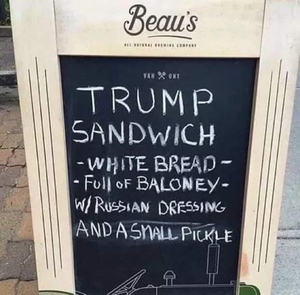 Beau's
ALL NATURAL BREWING COMPANY
VAN ONT
TRUMP
SANDWICH
-WHITE BREAD-
-FULL OF BALONEY-
W/RUSSIAN DRESSING
AND A SMALL PICKLE